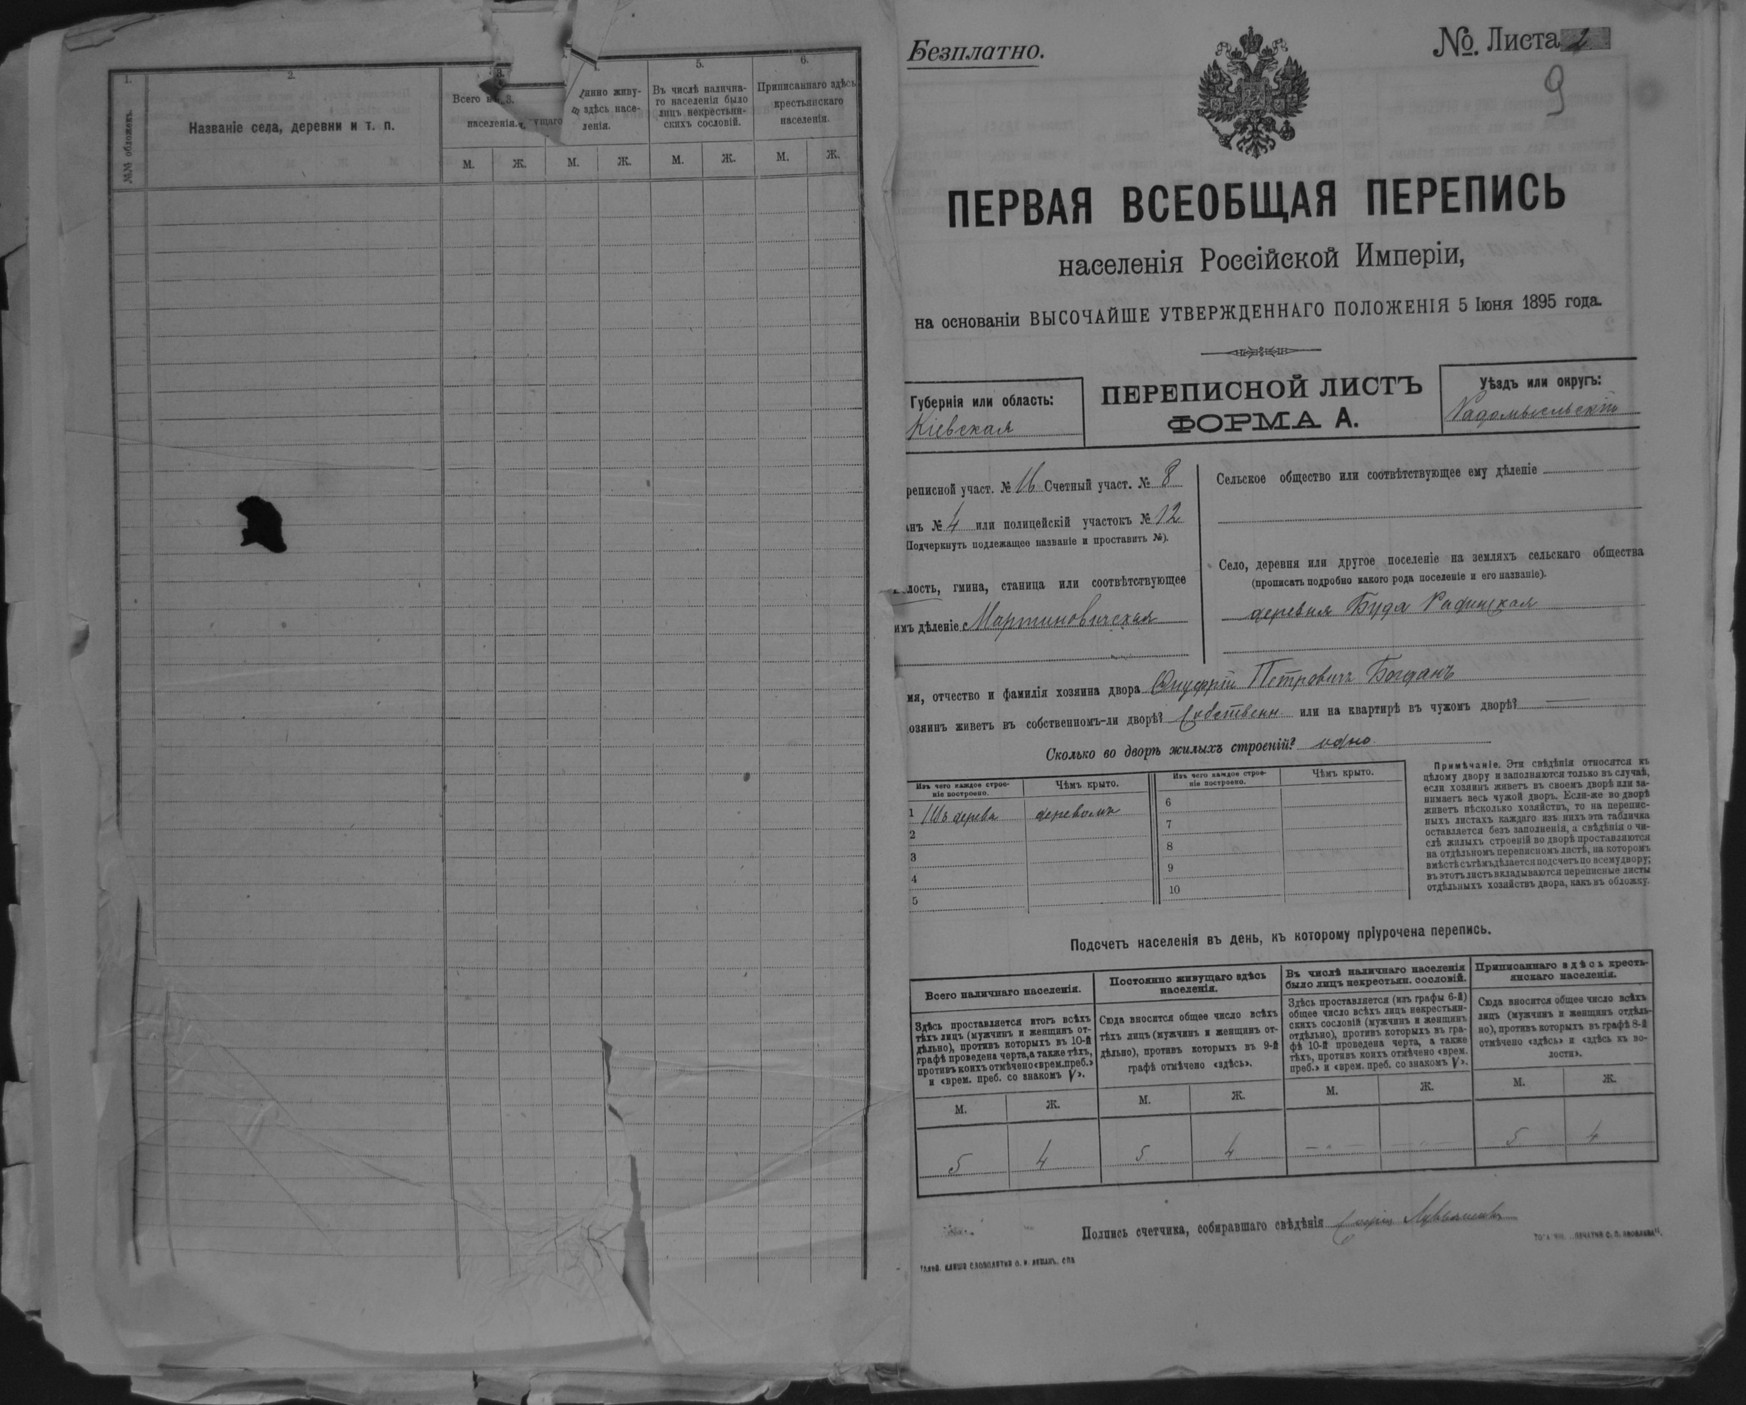 1.
2.
3.
4.
5.
6.
№№ обложекъ.
Названіе села, деревни и т. п.
Всего
населенія.
живу-
здѣсь насе-
ленія.
Въ числѣ налична-
го населенія было
лицъ некрестьян-
скихъ сословій.
Приписаннаго здѣсь
крестьянскаго
населенія.
М. Ж. М. Ж. М. Ж. М. Ж.
Безплатно.
№. Листа
9
ПЕРВАЯ ВСЕОБЩАЯ ПЕРЕПИСЬ
населенія Россійской Имперіи,
на основаніи ВЫСОЧАЙШЕ УТВЕРЖДЕННАГО ПОЛОЖЕНІЯ 5 Іюня 1895 года.
Губернія или область:
Кіевская
ПЕРЕПИСНОЙ ЛИСТЪ
ФОРМА А.
Уѣздъ или округъ:
Радомысльскій
реписной участ. № 16 Счетный участ. № 8
нъ № 4 или полицейскій участокъ № 12
Подчеркнуть подлежащее названіе и проставить №).
лость, гмина, станица или соотвѣтствующее
имъ дѣленіе Мартиновичская
Сельское общество или соотвѣтствующее ему дѣленіе
Село, деревня или другое поселеніе на земляхъ сельскаго общества
(прописать подробно какого рода поселеніе и его названіе).
деревня Буда
мя, отчество и фамилія хозяина двора Онуфрій Петровичъ Богданъ
озяинъ живетъ въ собственномъ-ли дворѣ? Собственн. или на квартирѣ въ чужомъ дворѣ? —
Сколько во дворѣ жилыхъ строеній? одно
Изъ чего каждое строе-
ніе построено.
Чѣмъ крыто.
Изъ чего каждое строе-
ніе построено.
Чѣмъ крыто.
1 Изъ дерева деревомъ
2
3
4
5
6
7
8
9
10
Примѣчаніе. Эти свѣдѣнія относятся къ
цѣлому двору и заполняются только въ случаѣ,
если хозяинъ живетъ въ своемъ дворѣ или за-
нимаетъ весь чужой дворъ. Если-же во дворѣ
живетъ нѣсколько хозяйствъ, то на перепис-
ныхъ листахъ каждаго изъ нихъ эта табличка
оставляется безъ заполненія, а свѣдѣнія о чи-
слѣ жилыхъ строеній во дворѣ проставляются
на отдѣльномъ переписномъ листѣ, на которомъ
вмѣстѣ съ тѣмъ дѣлается подсчетъ по всему двору;
въ этотъ листъ вкладываются переписные листы
отдѣльныхъ хозяйствъ двора, какъ въ обложку.
Подсчетъ населенія въ день, къ которому пріурочена перепись.
Всего наличнаго населенія.
Здѣсь проставляется итогъ всѣхъ
тѣхъ лицъ (мужчинъ и женщинъ от-
дѣльно), противъ которыхъ въ 10-й
графѣ проведена черта, а также тѣхъ,
противъ коихъ отмѣчено «врем. преб.»
и «врем. преб. со знакомъ V».
Постоянно живущаго здѣсь
населенія.
Сюда вносится общее число всѣхъ
тѣхъ лицъ (мужчинъ и женщинъ от-
дѣльно), противъ которыхъ въ 9-й
графѣ отмѣчено «здѣсь».
Въ числѣ наличнаго населенія
было лицъ некрестьян. сословій.
Здѣсь проставляется (изъ графы 6-й)
общее число всѣхъ лицъ некрестьян-
скихъ сословій (мужчинъ и женщинъ
отдѣльно), противъ которыхъ въ гра-
фѣ 10-й проведена черта, а также
тѣхъ, противъ коихъ отмѣчено «врем.
преб.» и «врем. преб. со знакомъ V».
Приписаннаго здѣсь кресть-
янскаго населенія.
Сюда вносится общее число всѣхъ
лицъ (мужчинъ и женщинъ отдѣль-
но), противъ которыхъ въ графѣ 8-й
отмѣчено «здѣсь» и «здѣсь къ во-
лости».
М. Ж. М. Ж. М. Ж. М. Ж.
5 4 5 4 — — 5 4
Подпись счетчика, собиравшаго свѣдѣнія